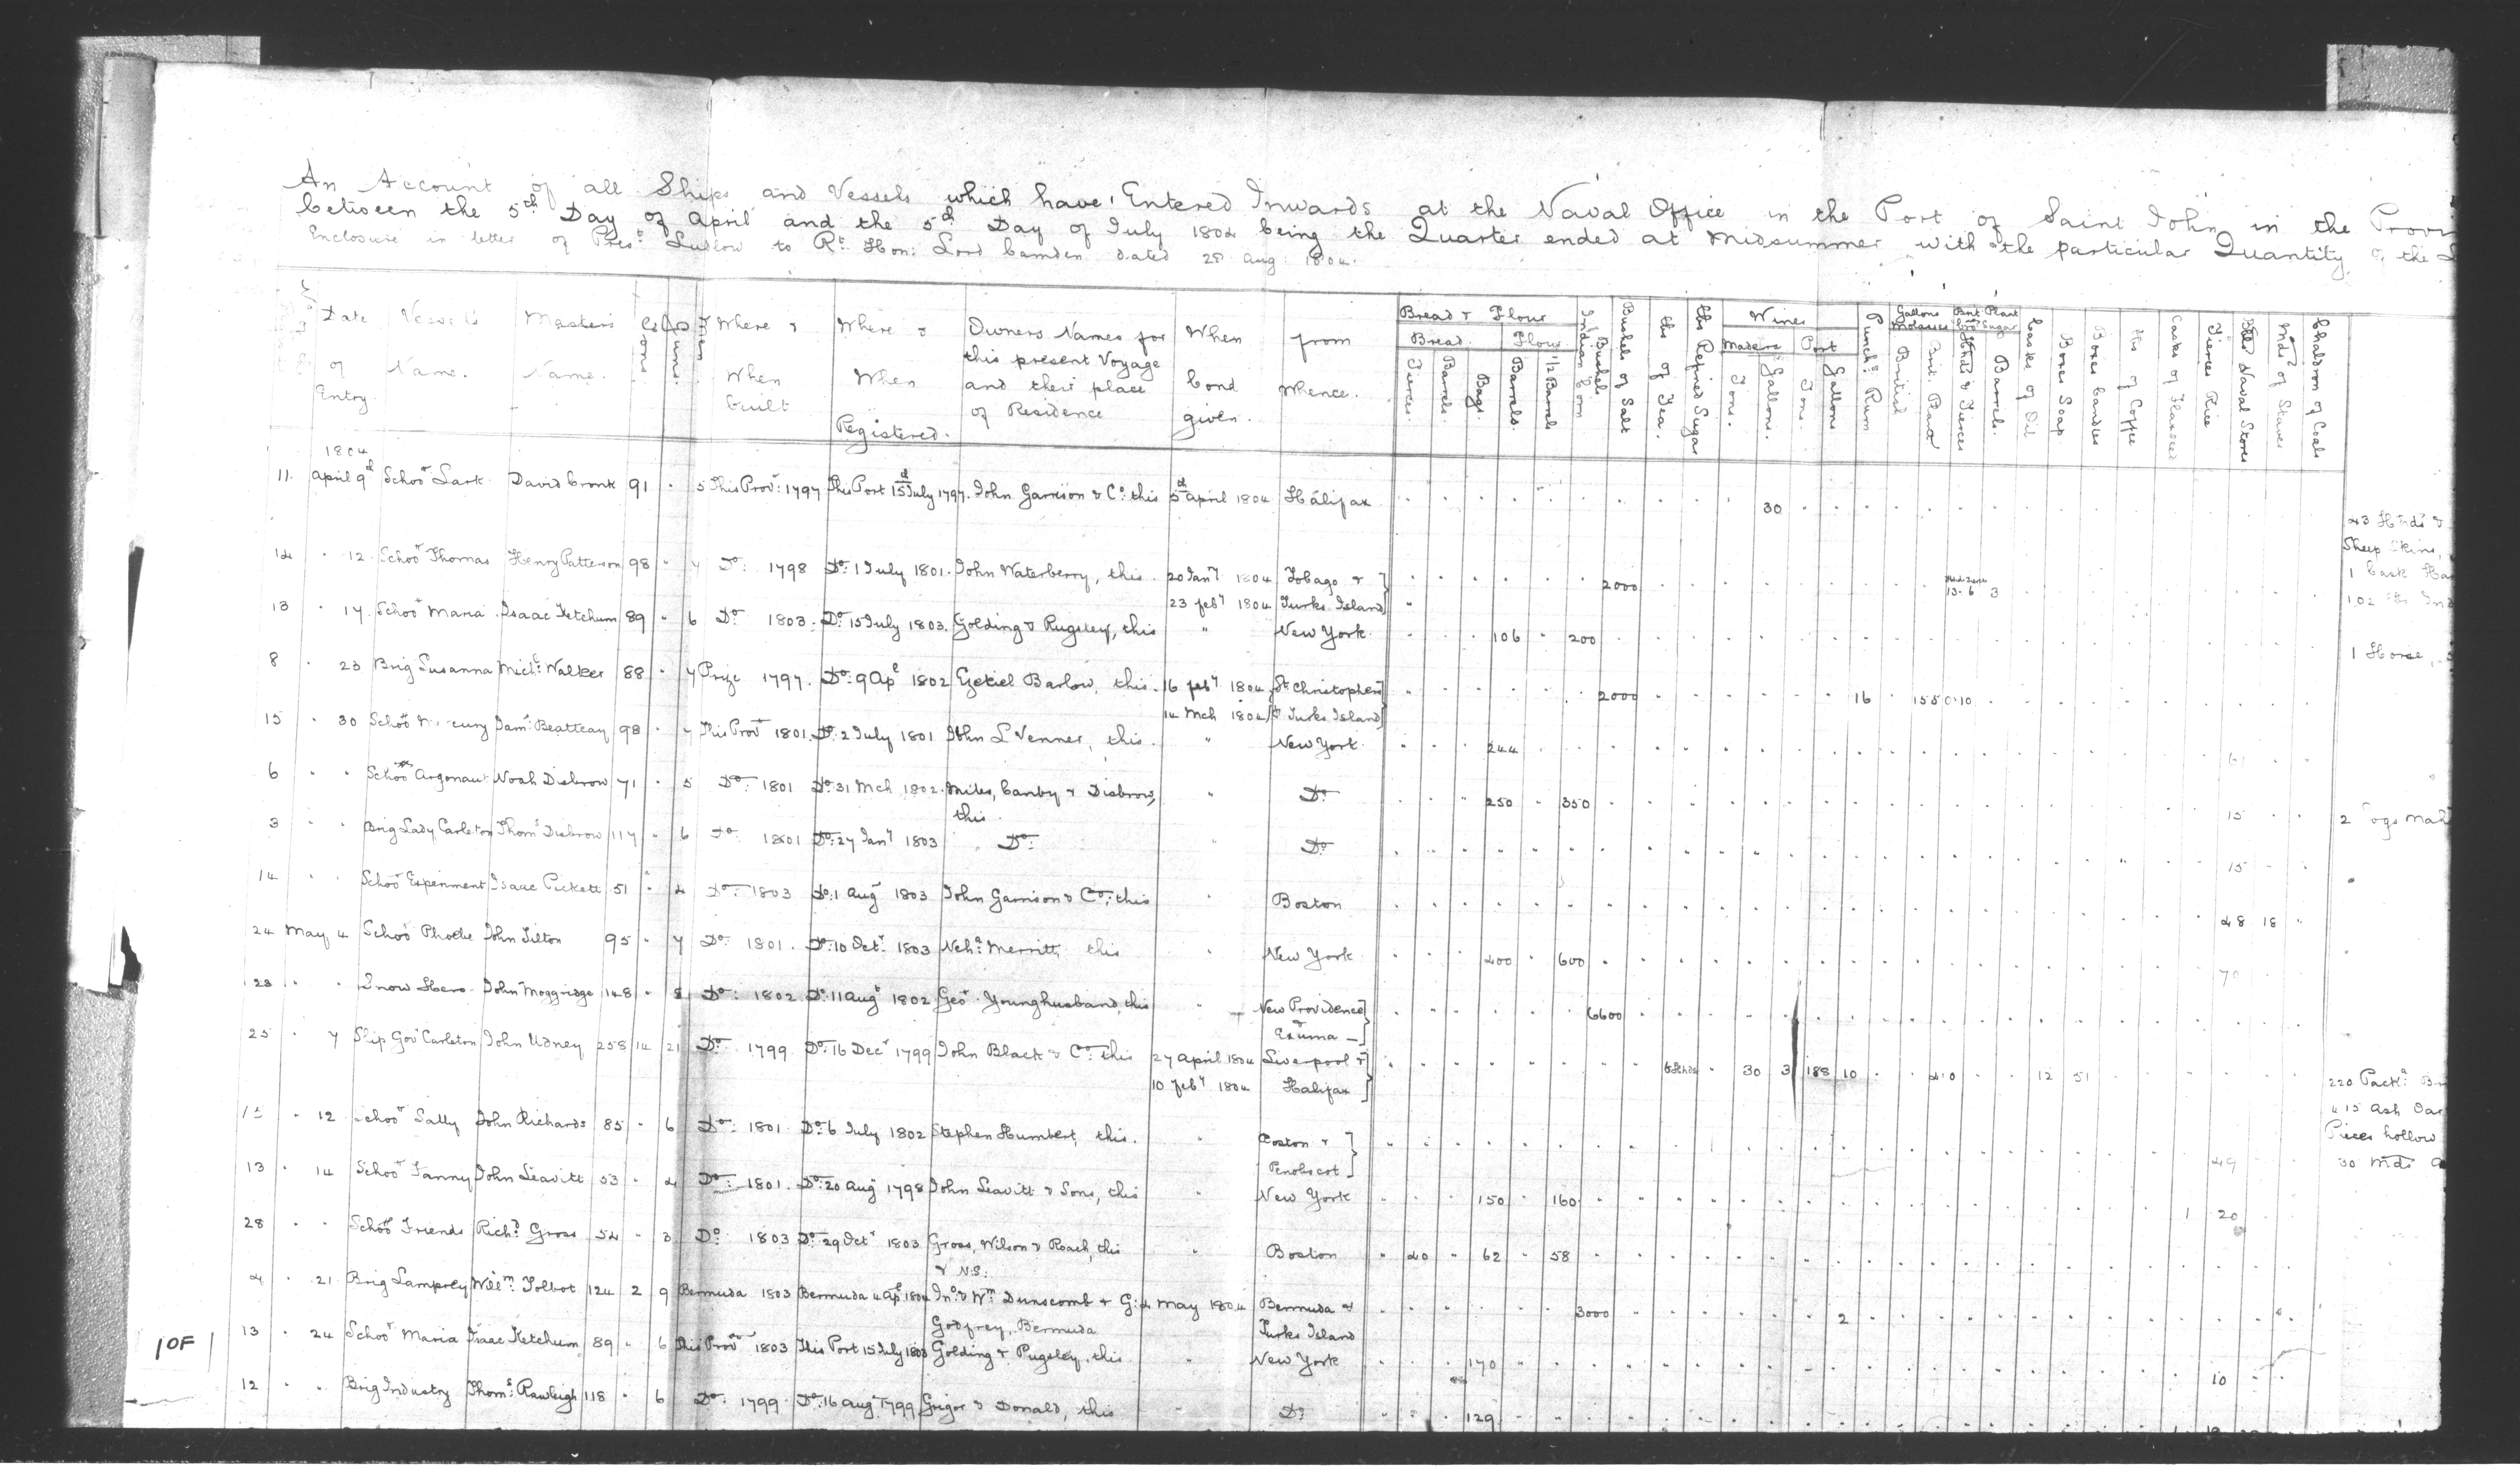 An Account of all Ships and Vessels which have Entered Inwards at the Naval Office in the Port of Saint John in the Provi
between the 5th Day of April and the 5th Day of July 1804 being the Quarter ended at Midsummer with the particular Quantity of the
Enclosure in letter of Prest Ludlow to Rt Hon: Lord Camden dated 28 Aug 1804.
Date of Entry
Vessel's Name.
Master's Name.
Tons
Guns.
Men
Where & When built
Where & When Registered.
Owners Names for this present Voyage and their place of Residence
When bond given.
from Whence.
Bread & Flour
Bread.
Flour
Tierces.
Barrels.
Bags.
Barrels.
1/2 Barrels
Bushels Indian Corn
Bushels of Salt
lbs of Tea.
lbs Refined Sugar
Wines
Madeira
Port
Tons.
Gallons.
Tons.
Gallons
Punchs Rum
Gallons Molasses
British
Brit. Plant
Brit Plant Sugar
Hhds & Tierces
Barrels.
Casks of Oil
Boxes Soap
Boxes Candles
lbs of Coffee
Casks of Flaxseed
Tierces Rice
Bbls Naval Stores
Mds of Staves
Chaldron of Coals
1804
11. April 9d Schoor Lark David Cronk 91 5 This Prov: 1797 This Port 15d July 1797. John Garrison & Co: this 5d April 1804 Halifax 30
43 Hhds &
Sheep Skins,
12 12 Schoor Thomas Henry Patterson 98 7 Do: 1798 Do: 1 July 1801. John Waterberry, this. 20 Jany 1804 Tobago & 2000 13. 6 3
1 Cask
23 feby 1804 Turks Island
102 lbs
13 17. Schoor Maria Isaac Ketchum 89 6 Do: 1803. Do: 15 July 1803. Golding & Pugsley, this " New York. 106 200
1 Horse,
8 23 Brig Susanna Michl: Walker 88 7 Prize 1797. Do: 9 Apl 1802 Ezekiel Barlow, this. 16 feby 1804 St Christophers 2000 16 1550 10
14 Mch 1804 & Turks Island
15 30 Schoor Jams: Beatteay 98 7 This Prov 1801. Do: 2 July 1801 John L Venner, this. " New York. 244 61
6 Schoor Argonaut Noah Disbrow 71 5 Do: 1801 Do: 31 Mch 1802. Miles, Canby & Disbrow, " Do 250 350 15
this.
3 Brig Lady Carleton Thoms Disbrow 117 6 Do 1801 Do: 27 Jany 1803 Do: Do 15
14 Schoor Experiment Isaac Pickett 51 4 Do: 1803 Do: 1 Aug 1803 John Garrison & Co; this Boston 48 18
24 May 4 Schoor Phoebe John Tilton 95 7 Do: 1801. Do: 10 Octr 1803 Neha: Merritt, this New York 400 600 70
23 Snow Hero John Moggridge 148 8 Do: 1802 Do: 11 Augt 1802 Geor Younghusband, this New Providence 6600
Exuma
25 7 Ship Gov Carleton John Udney 258 14 21 Do 1799 Do: 16 Decr 1799 John Black & Co: this 27 April 1804 Liverpool & 30 3 188 10 12 51
220 Packs:
10 feby 1804 Halifax
415 Ash Oar
Pieces hollow
12 Schoor Sally John Richards 85 6 Do: 1801. Do: 6 July 1802 Stephen Humbert, this. " Boston & 49
30 Mds
Penobscot
13 14 Schoor Fanny John Leavitt 53 4 Do: 1801. Do: 20 Aug 1798 John Leavitt & Sons, this " New York 150 160 1 20
28 Schoor Friends Richd: Gross 54 3 Do: 1803 Do: 29 Octr 1803 Gross, Wilson & Roach, this " Boston 40 62 58
& N.S:
4 21 Brig Lamprey Willm: Tolbot 124 2 9 Bermuda 1803 Bermuda 4 Apl 1804 Jno & Wm Dunscomb & G: 4 May 1804 Bermuda & 3000 2
Godfrey, Bermuda Turks Island
13 24 Schoor Maria Isaac Ketchum 89 6 This Prov 1803 This Port 15 July 1803 Golding & Pugsley, this " New York 170 10
12 Brig Industry Thoms: Rawleigh 118 6 Do: 1799. Do: 16 Aug 1799 Grigor & Donald, this " Do: 129
1 OF